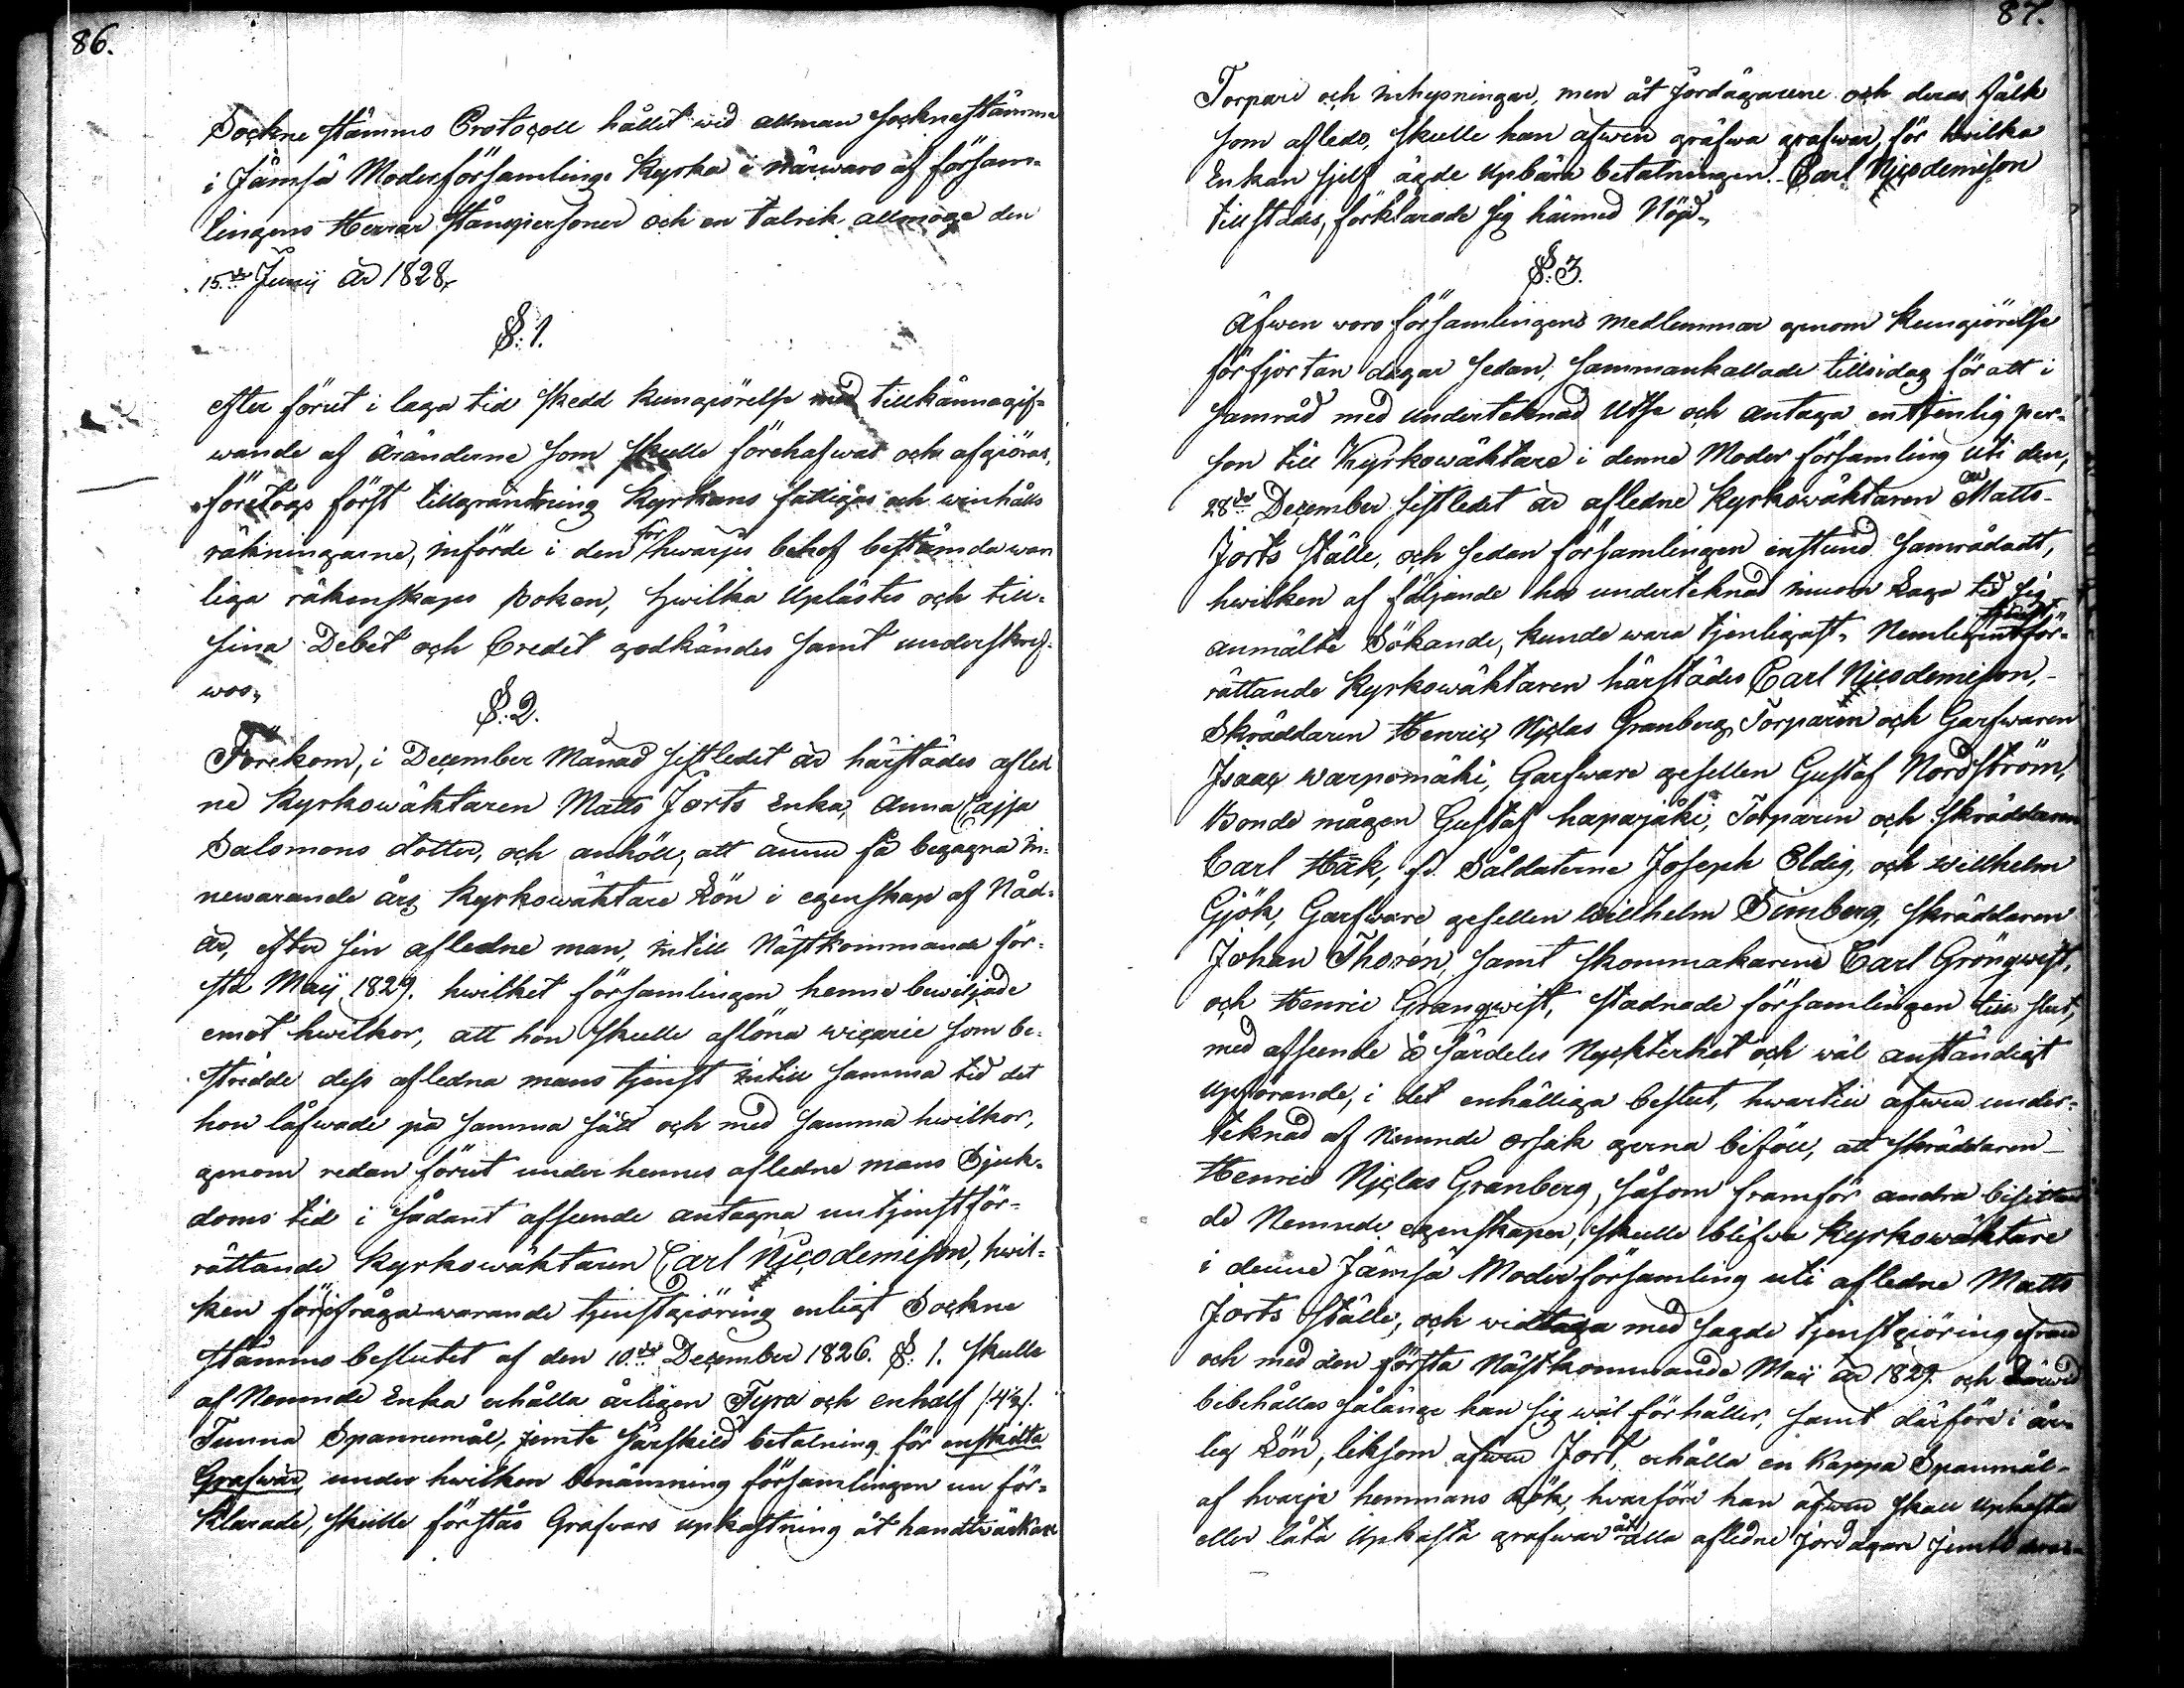 86.
Sockne stämmo Protocoll hållit wid allmän socknestämma
i Jämsä Moderförsamlings Kyrka i närwaro af försam-
lingens Herrar Ståndspersoner och en talrik allmoge den
15de Junij år 1828,
§. 1.
efter förut i laga tid skedd kungiörelse med tillkännagif-
wande af ärånderne som skulle förehafwas och afgiöras,
företogs först till granskning Kyrkans fattigas och winhålls
räkningarne, införde i den för hwarjes behof bestämda wan
liga räkenskaps boken, hwilka Uplästes och till
sina Debet och Credit godkändes samt underskref-
wos,
§. 2.
Förekom, i December Månad sistledit år härstädes afled
ne Kyrkowäktaren Matts Jorts Enka, Anna Cajsa
Salomons dotter, och anhöll, att ännu få begagna in-
newarande års Kyrkowäktare Lön i egenskap af Nåd-
år, efter sin afledne man, intill Nästkommande för-
sta Maij 1829. hwilket församlingen henne bewiljade
emot hwilkor, att hon skulle aflöna wicarie som be-
stridde dess afledna mans tjenst intill samma tid det
hon låfwade på samma sätt och med samma hwilkor,
genom redan förut under hennes afledne mans Sjuk-
doms tid i sådant afseende antagna nu tjenstför-
rättande Kyrkowäktaren Carl Nicodemisson, hwil-
ken för ifrågawarande tjenstgiöring enligt Sockne
stämmo beslutet af den 10de December 1826. §. 1. skulle
af Nemnde Enka erhålla årligen Fyra och enhalf /4½/.
Tunna Spannemål, jemte särskild betalning för enskilta
Grafwar, under hwilken benämning församlingen nu för-
klarade, skulle förstås Grafvars upkastning åt handtwärkare
87.
Torpare och inhysningar, men åt Jordägarene och deras fålk
som afledo, skulle han äfwen gräfwa grafwar, för hwilka
Enkan sjelf ägde upbära betalningen. Carl Nicodemisson
tillstädes, förklarade sig härmed Nöjd,
§. 3.
Äfwen woro församlingens medlemmar genom kungiörelse
för fjortan dagar sedan, sammankallade tills idag för att i
samråd med undertecknad Utse och antaga en tjenlig per-
son till Kyrkowäktare i denne Moder församling uti den,
28de December sistledit år afledne Kyrkowäktaren Matts
Jorts ställe, och sedan församlingen enstund samrådadt,
hwilken af följande hos underteknad innom Laga tid sig
anmälte Sökande, kunde wara tjenligast, Nemligen tjenst för-
rättande Kyrkowäktaren härstädes Carl Nicodemisson,
Skräddaren Henric Niclas Granberg, Torparen och Garfwaren
Isaac Warpomäki, Garfware gesellen Gustaf Nordström,
Bonde mågen Gustaf hapajäki, Torparen och Skräddaren
Carl Häk, fd. Såldaterne Joseph Eldig, och Willhelm
Gjök, Garfware gesellen Willhelm Simberg, skräddaren
Johan Thorén, samt skommakarene Carl Grönqwist,
och Henric Granqwist, stadnade församlingen till slut,
med afseende å särdeles Nyckterhet och wäl anständigt
upförande, i det enhälliga beslut, hwartill äfwen under-
teknad af nemnde orsak gerna biföll, att skräddaren
Henric Niclas Granberg, såsom framför andra besittan
de Nemnde egenskaper, skulle blifwa Kyrkowäktare
i denne Jämsä Moderförsamling uti afledne Matts
Jorts ställe, och widtaga med sagde tjenstgiöring ifrån
och med den första Nästkommande Maij år 1829. och därwid
bibehållas sålänge han sig wäl förhåller, samt därföre i år-
lig Lön, liksom äfwen Jort, erhålla en Kappa Spanmål
af hvarje hemmans Rök, hvarföre han äfwen skall upkasta
eller låta Upkasta grafwar åt alla afledne Jordägare jemte deras